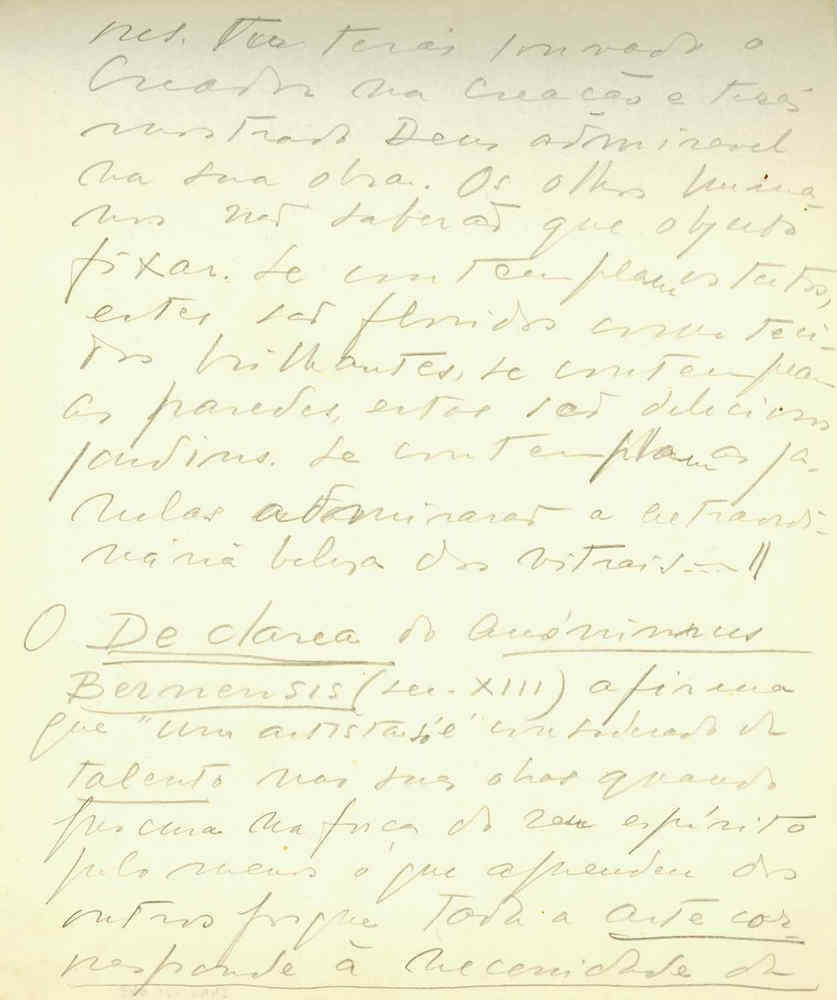 res. Tu terás louvado o
Creador na creação e terás
mostrado Deus admiravel
na sua obra. Os olhos huma-
nos não saberão que objecto
fixar. Se contemplam os tectos,
estes são floridos como teci-
dos brilhantes, se contemplam
as paredes, estas são deliciosos
jardins. Se contemplam as ja-
nelas admirarão a extraordi-
nária beleza dos vitrais... ||
O De clarea do Anónimus
Bernensis (sec. XIII) afirma
que "um artista só é considerado de
talento nas suas obras quando
procura na força do seu espírito
pelo menos o que aprendeu dos
outros porque toda a arte cor-
responde à necessidade de